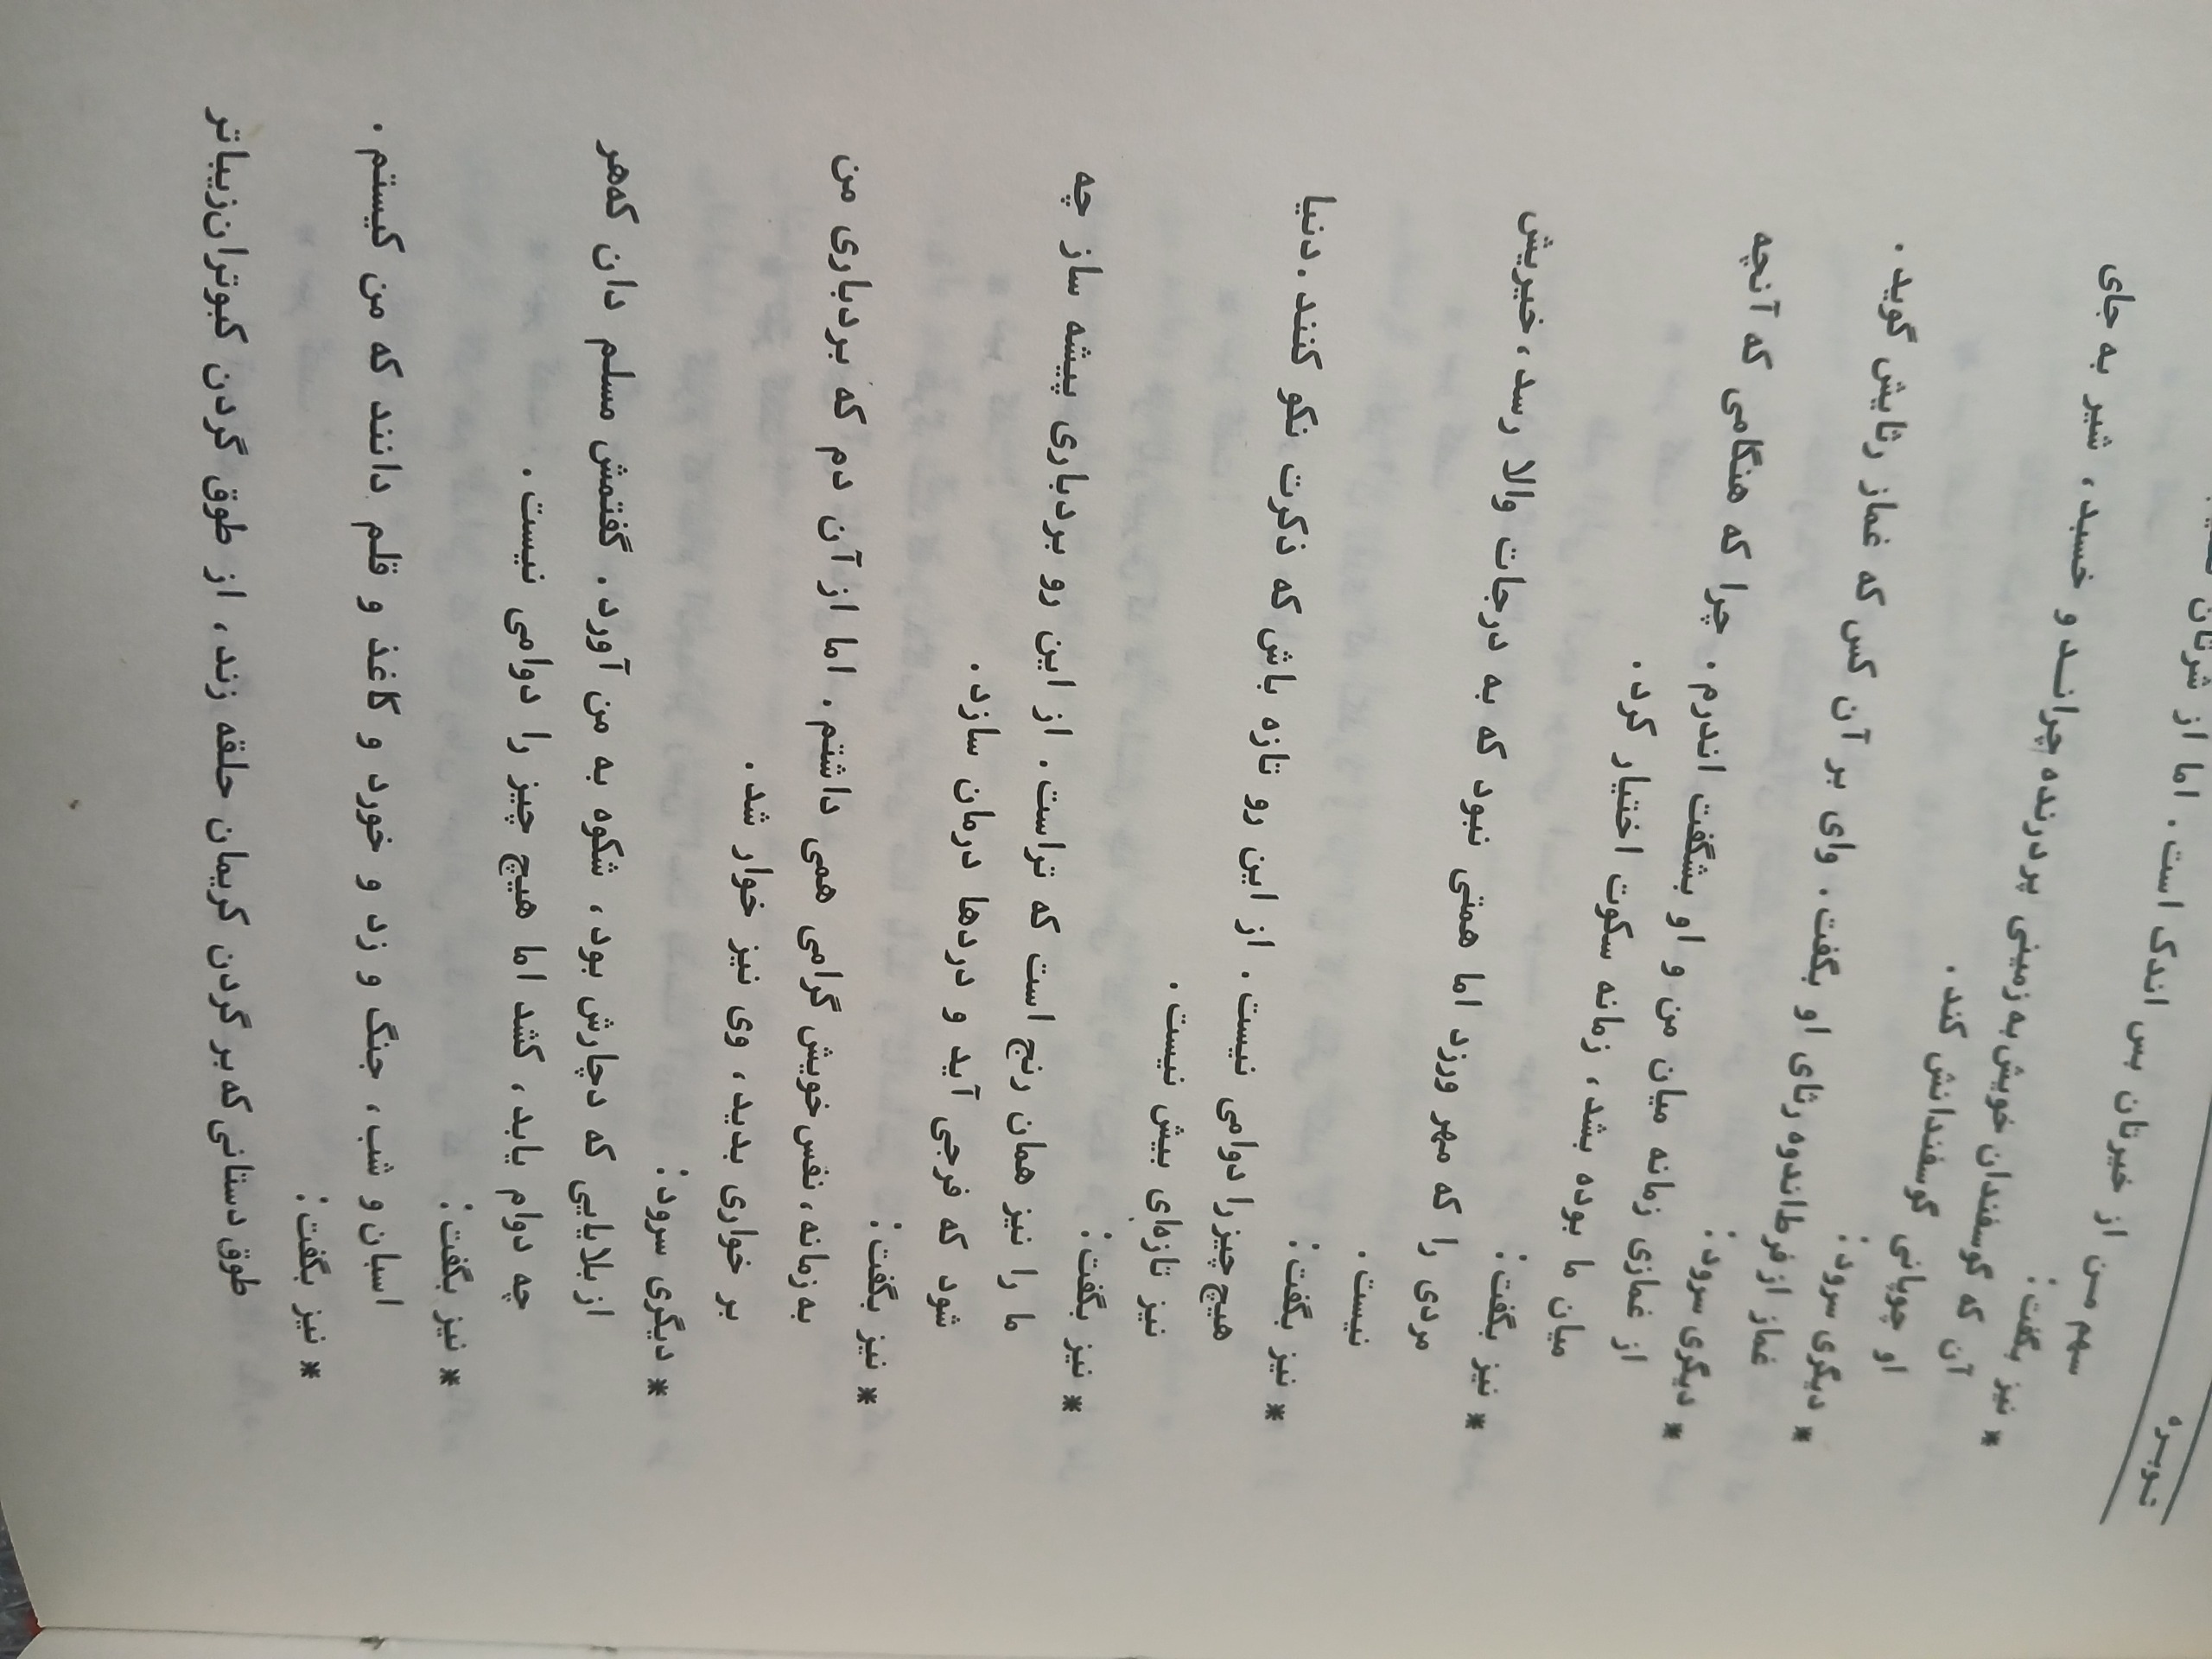 نوبره
سهم من از خیرتان بس اندک است. اما از شرتان
* نیز بگفت:
آن که گوسفندان خویش به زمینی پر درنده چراند و خسبد، شیر به جای
او چوپانی گوسفندانش کند.
* دیگری سرود:
غماز از فرط اندوه رثای او بگفت. وای بر آن کس که غماز رثایش گوید.
* دیگری سرود:
از غمازی زمانه میان من و او بشگفت اندرم. چرا که هنگامی که آنچه
میان ما بوده بشد، زمانه سکوت اختیار کرد.
* نیز بگفت:
مردی را که مهر ورزد اما همتی نبود که به درجات والا رسد، خیریش
نیست.
* نیز بگفت:
هیچ چیز را دوامی نیست. از این رو تازه باش که ذکرت نکو کنند. دنیا
نیز تازه‌ای بیش نیست.
* نیز بگفت:
ما را نیز همان رنج است که تراست. از این رو بردباری پیشه ساز چه
شود که فرجی آید و دردها درمان سازد.
* نیز بگفت:
به زمانه، نفس خویش گرامی همی داشتم. اما از آن دم که بردباری من
بر خواری بدید، وی نیز خوار شد.
* دیگری سرود:
از بلایایی که دچارش بود، شکوه به من آورد. گفتمش مسلم دان که هر
چه دوام یابد، کشد اما هیچ چیز را دوامی نیست.
* نیز بگفت:
اسبان و شب، جنگ و زد و خورد و کاغذ و قلم دانند که من کیستم.
* نیز بگفت:
طوق دستانی که بر گردن کریمان حلقه زند، از طوق گردن کبوتران زیباتر